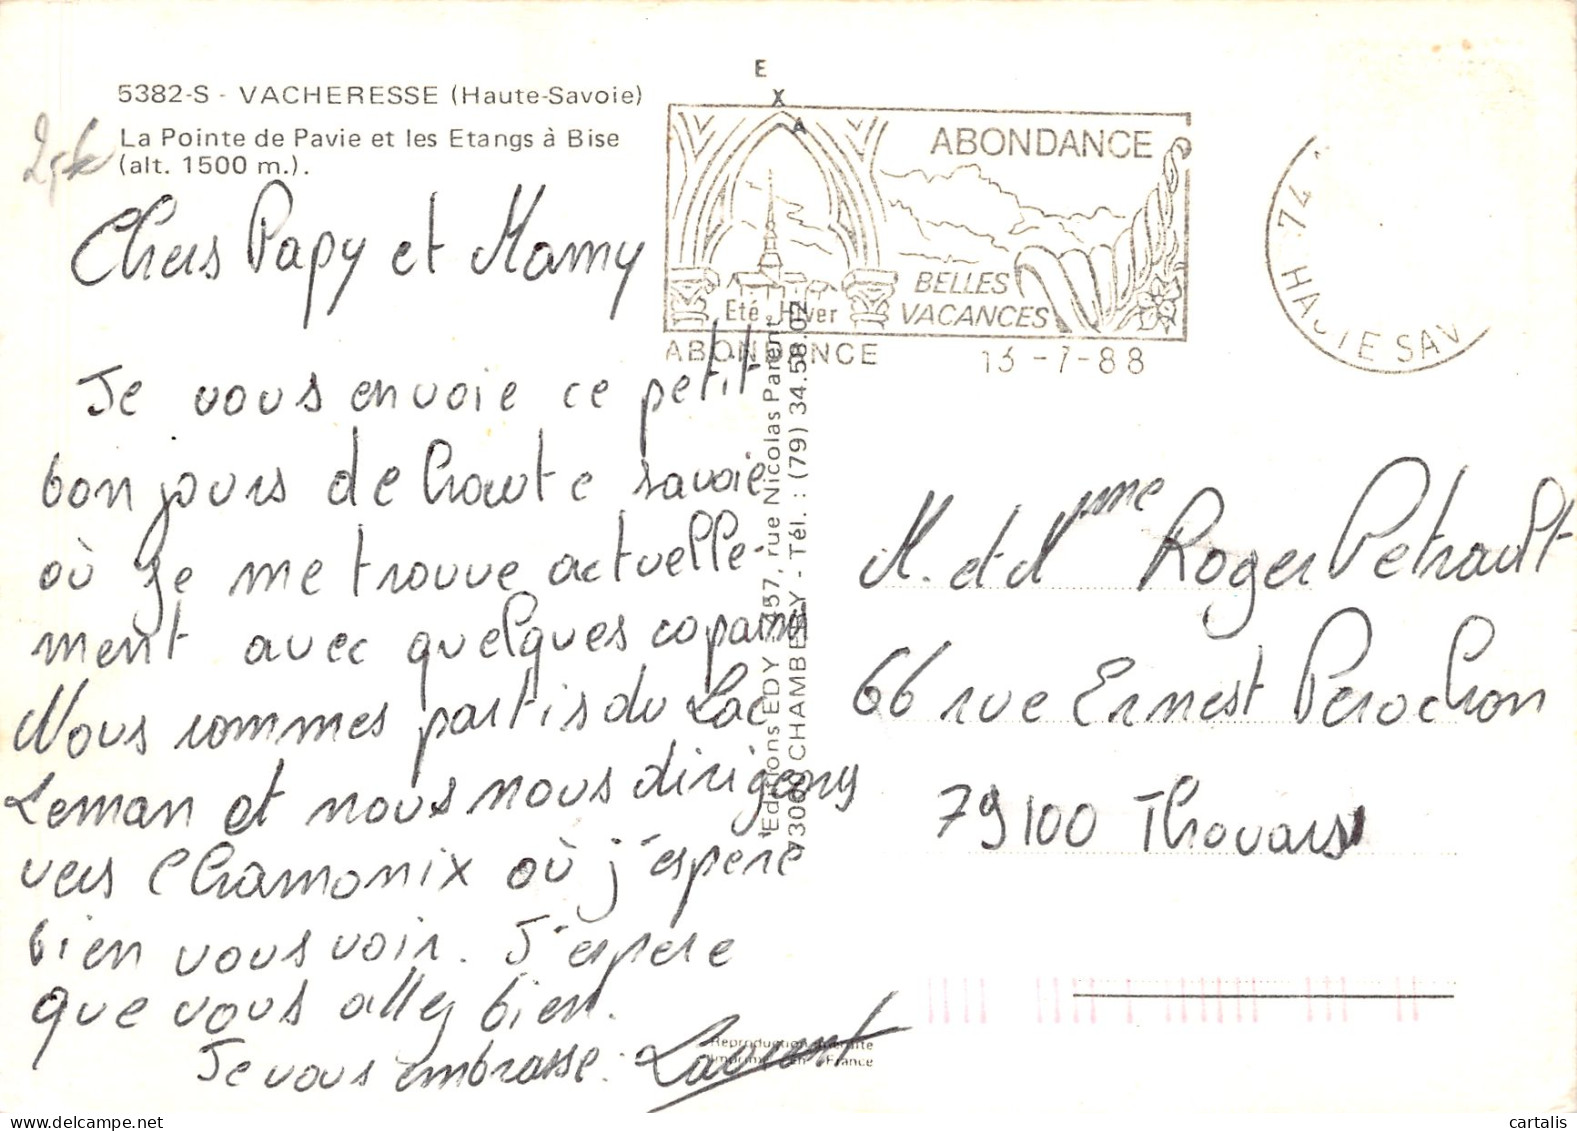 5382-S - VACHERESSE (Haute-Savoie)
La Pointe de Pavie et les Etangs à Bise
(alt. 1500 m.).
Chers Papy et Mamy
Je vous envoie ce petit
bonjours de haute savoie
où je me trouve actuelle-
ment avec quelques copains
Nous sommes partis du Lac
Leman et nous nous dirigeons
vers Chamonix où j'espère
bien vous voir. J'espere
que vous allez bien.
Je vous embrasse. Laurent
E
X
A
ABONDANCE
BELLES
VACANCES
Eté Hiver
ABONDANCE
13-7-88
74 HAUTE SAV
Editions EDY 357, rue Nicolas Parent
73000 CHAMBERY - Tél. : (79) 34.58.02
M. et Mme Roger Petrault
66 rue Ernest Perochon
79100 Thouars
Reproduction interdite
Imprimé en France
cartalis